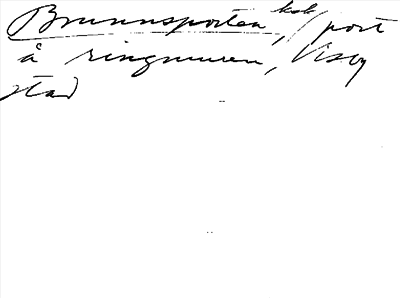 Brunnsporten, / port
å ringmuren, Visby
stad